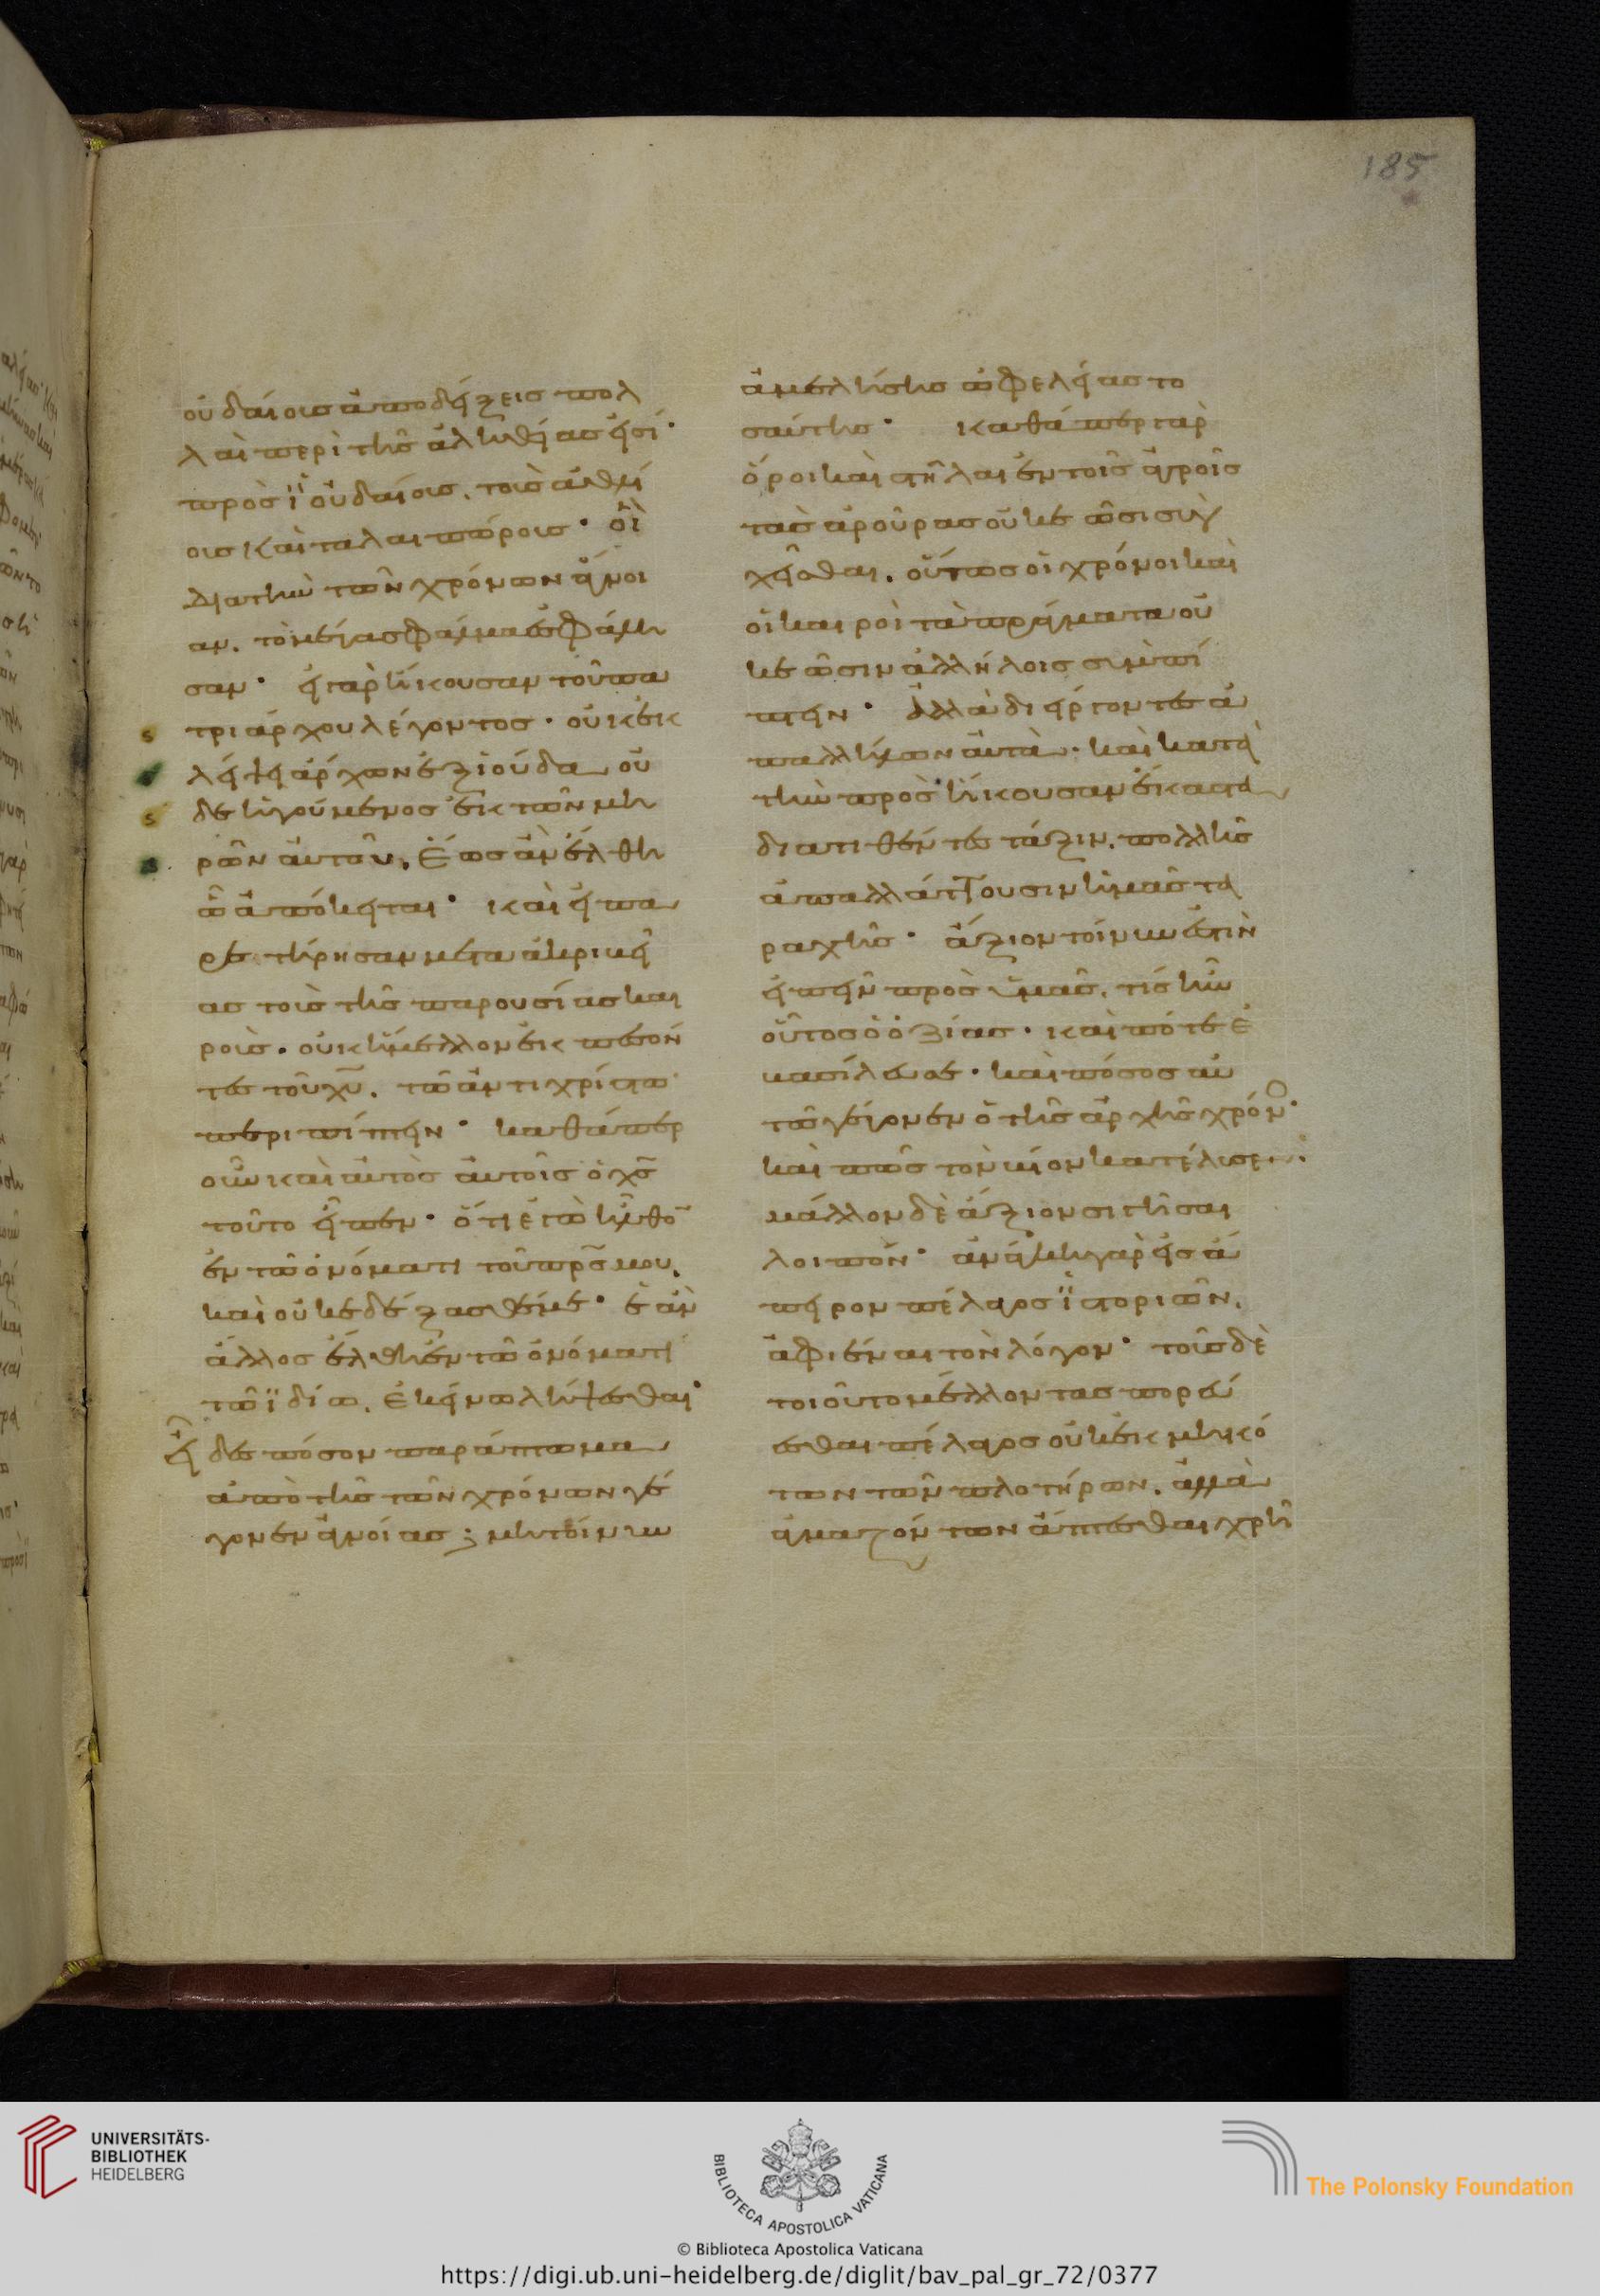 185
ουδαίοις ἀποδείξεις πολ
λαὶ περὶ τῆς ἀληθείας εἰσί·
πρὸς ἰουδαίους. τοὺς ἀθλί
ους καὶ ταλαιπώρους· οἳ
διὰ τὴν τῶν χρόνων ἄγνοι
αν. τὸ μέγα σφάλμα ἐσφάλη
σαν· εἰ γὰρ ἤκουσαν τοῦ πα
τριάρχου λέγοντος· οὐκ ἐκ
λείψει ἄρχων ἐξ ἰούδα οὐ
δὲ ἡγούμενος ἐκ τῶν μη
ρῶν αὐτοῦ. ἕως ἂν ἔλθη
ὧ ἀπόκειται· καὶ εἰ πα
ρετήρησαν μετὰ ἀκριβεί
ας τοὺς τῆς παρουσίας και
ρούς. οὐκ ἤμελλον ἐκπεσόν
τες τοῦ χυ̅. τῶ ἀντιχρίστω
περιπίπτειν· καθάπερ
οὖν καὶ αὐτὸς αὐτοῖς ὁ χς̅
τοῦτο εἶπεν· ὅτι ἐγὼ ἦλθο̅
ἐν τῶ ὀνόματι τοῦ πρς̅ μου.
καὶ οὐκ ἐδέξασθέ με· ἐὰν
ἄλλος ἔλθη ἐν τῶ ὀνόματι
τῶ ἰδίω. ἐκείνω λήψεσθαι·
εἶδες πόσον παράπτωμα
ἀπὸ τῆς τῶν χρόνων γέ
γονεν ἀγνοίας; μὴ τοίνυν
ἀμελήσης ὠφελείας το
σαύτης· καθάπερ γὰρ
ὅροι καὶ στῆλαι ἐν τοῖς ἀγροῖς
τὰς ἀρούρας οὐκ ἐῶσι συγ
χεῖσθαι. οὕτως οἱ χρόνοι καὶ
οἱ καιροὶ τὰ πράγματα οὐ
κ ἐῶσιν ἀλλήλοις συνεπί
πτειν· ἀλλὰ διείργοντες ἀ
παλλήλων αὐτὰ· καὶ κατὰ
τὴν προσήκουσαν ἕκαστα
διατιθέντες τάξιν. πολλῆς
ἀπαλλάττουσιν ἡμᾶς τα
ραχῆς· ἄξιον τοίνυν ἐστὶν
εἰπεῖν πρὸς ὑμᾶς. τίς ἦν
οὗτος ὁ ὀζίας· καὶ πότε ἐ
βασίλευσε· καὶ πόσος αὐ
τῶ γέγονεν ὁ τῆς ἀρχῆς χρόν·
καὶ πῶς τὸν βίον κατέλυσεν·
μᾶλλον δὲ ἄξιον σιγῆσαι
λοιπόν· ἀνάγκη γὰρ εἰς ἄ
πειρον πέλαγος ἱστοριῶν.
ἀφιέναι τὸν λόγον· τοὺς δὲ
τοιοῦτο μέλλοντας πορεύ
εσθαι πέλαγος οὐκ ἐκ
των τῶν πλοτήρων. ἀλλὰ
ἀκμαζόντων ἅπτεσθαι χρὴ
UNIVERSITÄTS-
BIBLIOTHEK
HEIDELBERG
BIBLIOTECA APOSTOLICA VATICANA
The Polonsky Foundation
© Biblioteca Apostolica Vaticana
https://digi.ub.uni-heidelberg.de/diglit/bav_pal_gr_72/0377